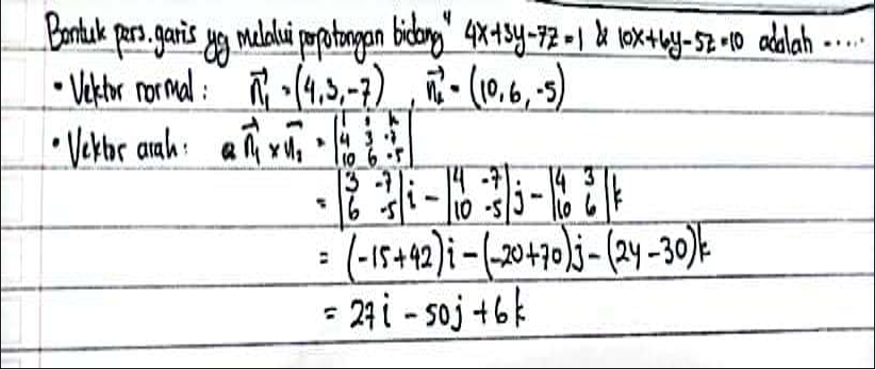 Bentuk pers. garis yg melalui perpotongan bidang" 4x+3y-7z=1 & 10x+6y-5z=10 adalah .....
• Vektor normal : n₁⃗ = (4,3,-7) , n₂⃗ = (10,6,-5)
• Vektor arah : a n₁⃗ x n₂⃗ = |i j k|
|4 3 -7|
|10 6 -5|
= |3 -7| i - |4 -7| j - |4 3| k
|6 -5| |10 -5| |10 6|
= (-15+42)i - (-20+70)j - (24-30)k
= 27i - 50j + 6k